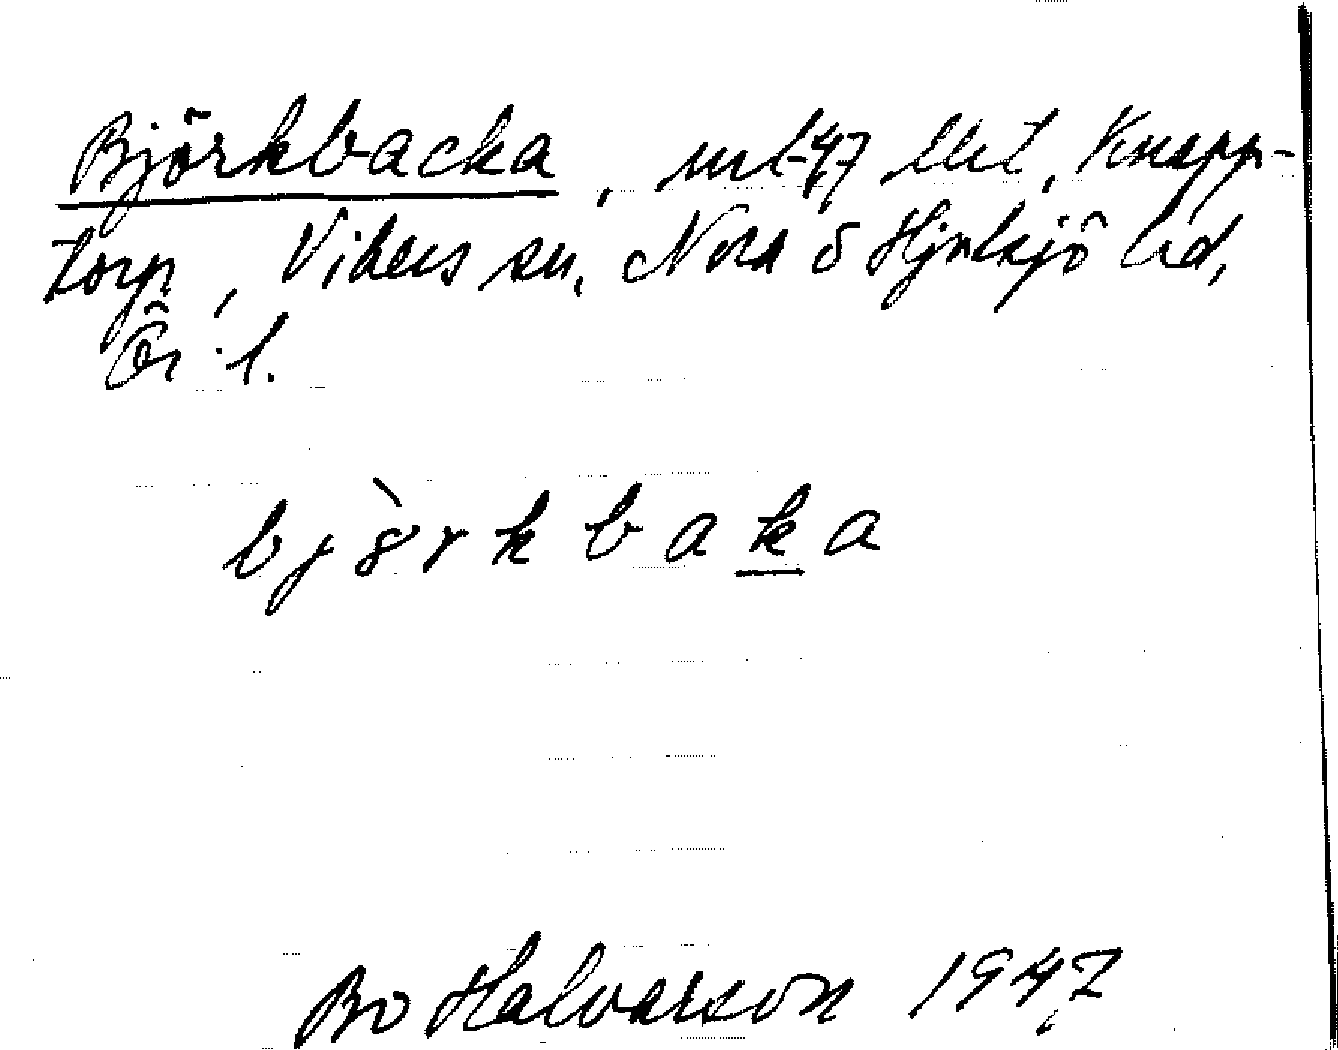 Björkbacka, url-47 lht, Knapp-
torp, Vikers sn. Nora o Hjulsjö hd,
Ör. l.
bjørkbaka
Bo Halvarson 1947